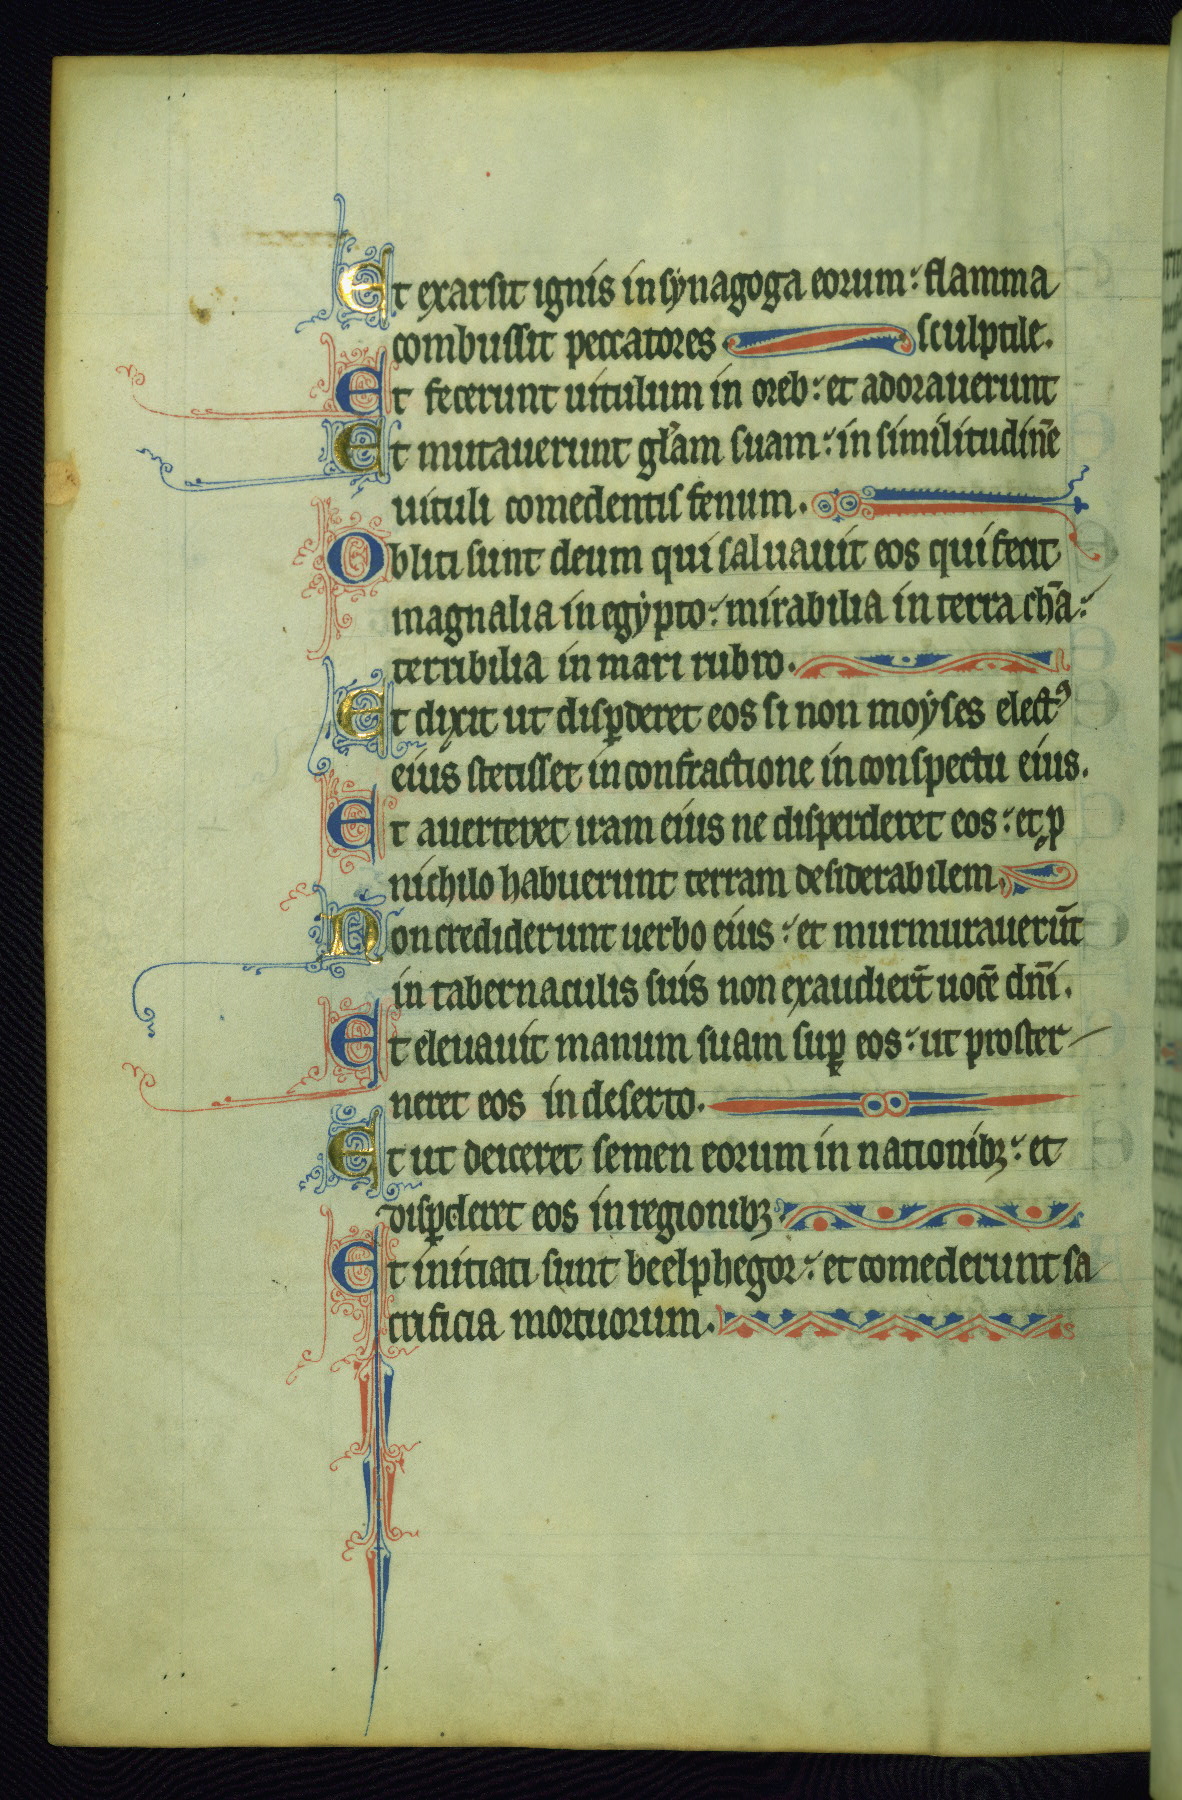 Et exarsit ignis in synagoga eorum: flamma
combussit peccatores sculptile.
Et fecerunt uitulum in oreb: et adorauerunt
Et mutauerunt gl̃am suam: in similitudinē
uituli comedentis fenum.
Obliti sunt deum qui saluauit eos qui fecit
magnalia in egypto: mirabilia in terra chā:
terribilia in mari rubro.
Et dixit ut disꝑderet eos si non moyses electꝰ
eius stetisset in confractione in conspectu eius.
Et auerteret iram eius ne disperderet eos: et ꝓ
nichilo habuerunt terram desiderabilem.
Non crediderunt uerbo eius: et murmurauerūt
in tabernaculis suis non exaudiert̄ uocē dn̄i.
Et eleuauit manum suam suꝑ eos: ut proster
neret eos in deserto.
Et ut deiceret semen eorum in nationibꝫ: et
disꝑderet eos in regionibꝫ.
Et initiati sunt beelphegor: et comederunt sa
crificia mortuorum.